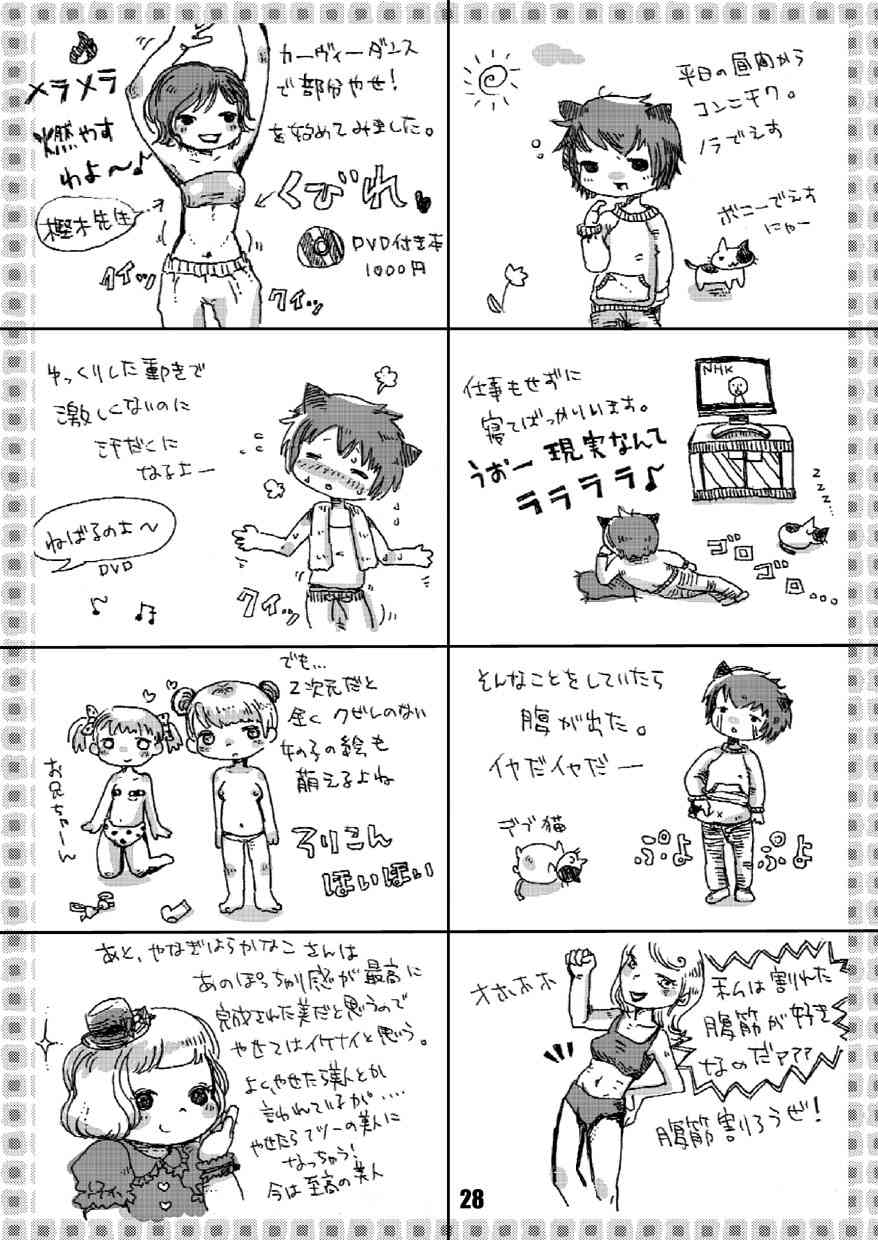 平日の昼間から
コンニチワ。
ノラでえす
ボニーでえす
にゃー
NHK
仕事もせずに
寝てばっかりいます。
うおー 現実なんて
ララララ♪
zzz...
ゴロ
ゴロ...
そんなことをしていたら
腹が出た。
イヤだイヤだー
デブ猫
ぷよ
ぷよ
オホホホ
私は割れた
腹筋が好き
なのだァァァ
腹筋割ろうぜ!
カーヴィーダンス
で部分やせ!
を始めてみました。
メラメラ
燃やす
わよ〜♪
樫木先生
くびれ
DVD付き本
1000円
クイッ
クイッ
ゆっくりした動きで
激しくないのに
汗だくに
なるよー
ねばるのよ〜
DVD
クイッ
あと、やなぎはらかなこさんは
あのぽっちゃり感が最高に
完成された美だと思うので
やせてはイケナイと思う。
よく、やせたら美人とか
言われているが....
やせたらフツーの美人に
なっちゃう!
今は至高の美人
28